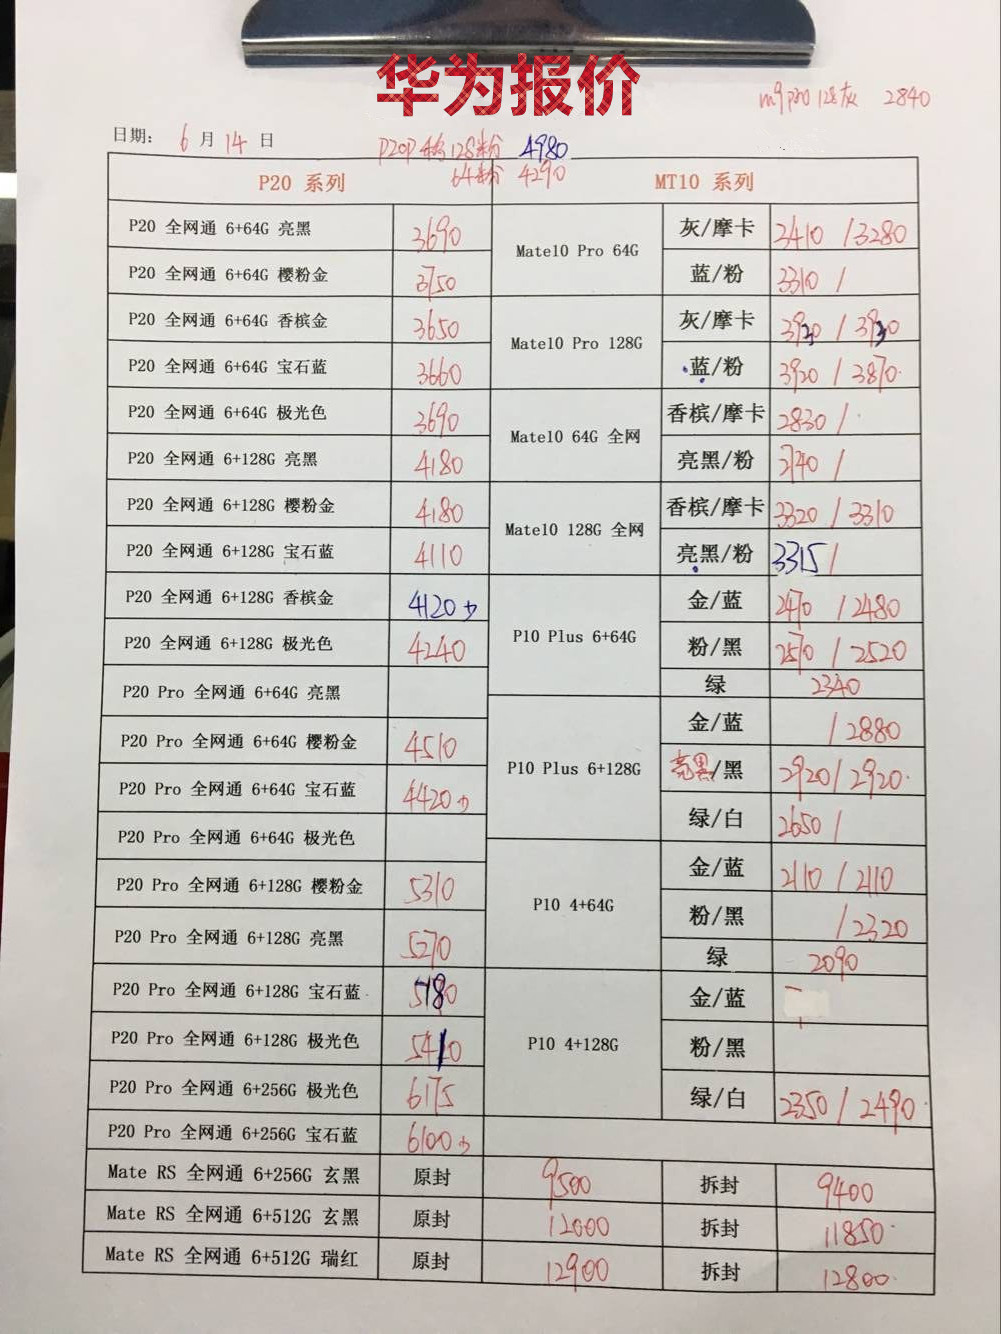 华为报价
m9pro 128灰 2840
日期： 6 月 14 日
P20P 128粉 4980
64粉 4290
P20 系列 MT10 系列
P20 全网通 6+64G 亮黑 3690 Mate10 Pro 64G 灰/摩卡 3410 /3280
P20 全网通 6+64G 樱粉金 3750 蓝/粉 3310 /
P20 全网通 6+64G 香槟金 3650 Mate10 Pro 128G 灰/摩卡 3930 / 3930
P20 全网通 6+64G 宝石蓝 3660 蓝/粉 3920 / 3870
P20 全网通 6+64G 极光色 3690 Mate10 64G 全网 香槟/摩卡 2830 /
P20 全网通 6+128G 亮黑 4180 亮黑/粉 2740 /
P20 全网通 6+128G 樱粉金 4180 Mate10 128G 全网 香槟/摩卡 3320 / 3310
P20 全网通 6+128G 宝石蓝 4110 亮黑/粉 3315 /
P20 全网通 6+128G 香槟金 4120 P10 Plus 6+64G 金/蓝 2470 / 2480
P20 全网通 6+128G 极光色 4240 粉/黑 2570 / 2520
P20 Pro 全网通 6+64G 亮黑 绿 2340
P20 Pro 全网通 6+64G 樱粉金 4510 P10 Plus 6+128G 金/蓝 / 2880
P20 Pro 全网通 6+64G 宝石蓝 4420 亮黑/黑 2920 / 2920
P20 Pro 全网通 6+64G 极光色 绿/白 2650 /
P20 Pro 全网通 6+128G 樱粉金 5310 P10 4+64G 金/蓝 2110 / 2110
P20 Pro 全网通 6+128G 亮黑 5270 粉/黑 / 2320
绿 2090
P20 Pro 全网通 6+128G 宝石蓝 5180 P10 4+128G 金/蓝
P20 Pro 全网通 6+128G 极光色 5410 粉/黑
P20 Pro 全网通 6+256G 极光色 6175 绿/白 2350 / 2490
P20 Pro 全网通 6+256G 宝石蓝 6100
Mate RS 全网通 6+256G 玄黑 原封 9500 拆封 9400
Mate RS 全网通 6+512G 玄黑 原封 12000 拆封 11850
Mate RS 全网通 6+512G 瑞红 原封 12900 拆封 12800